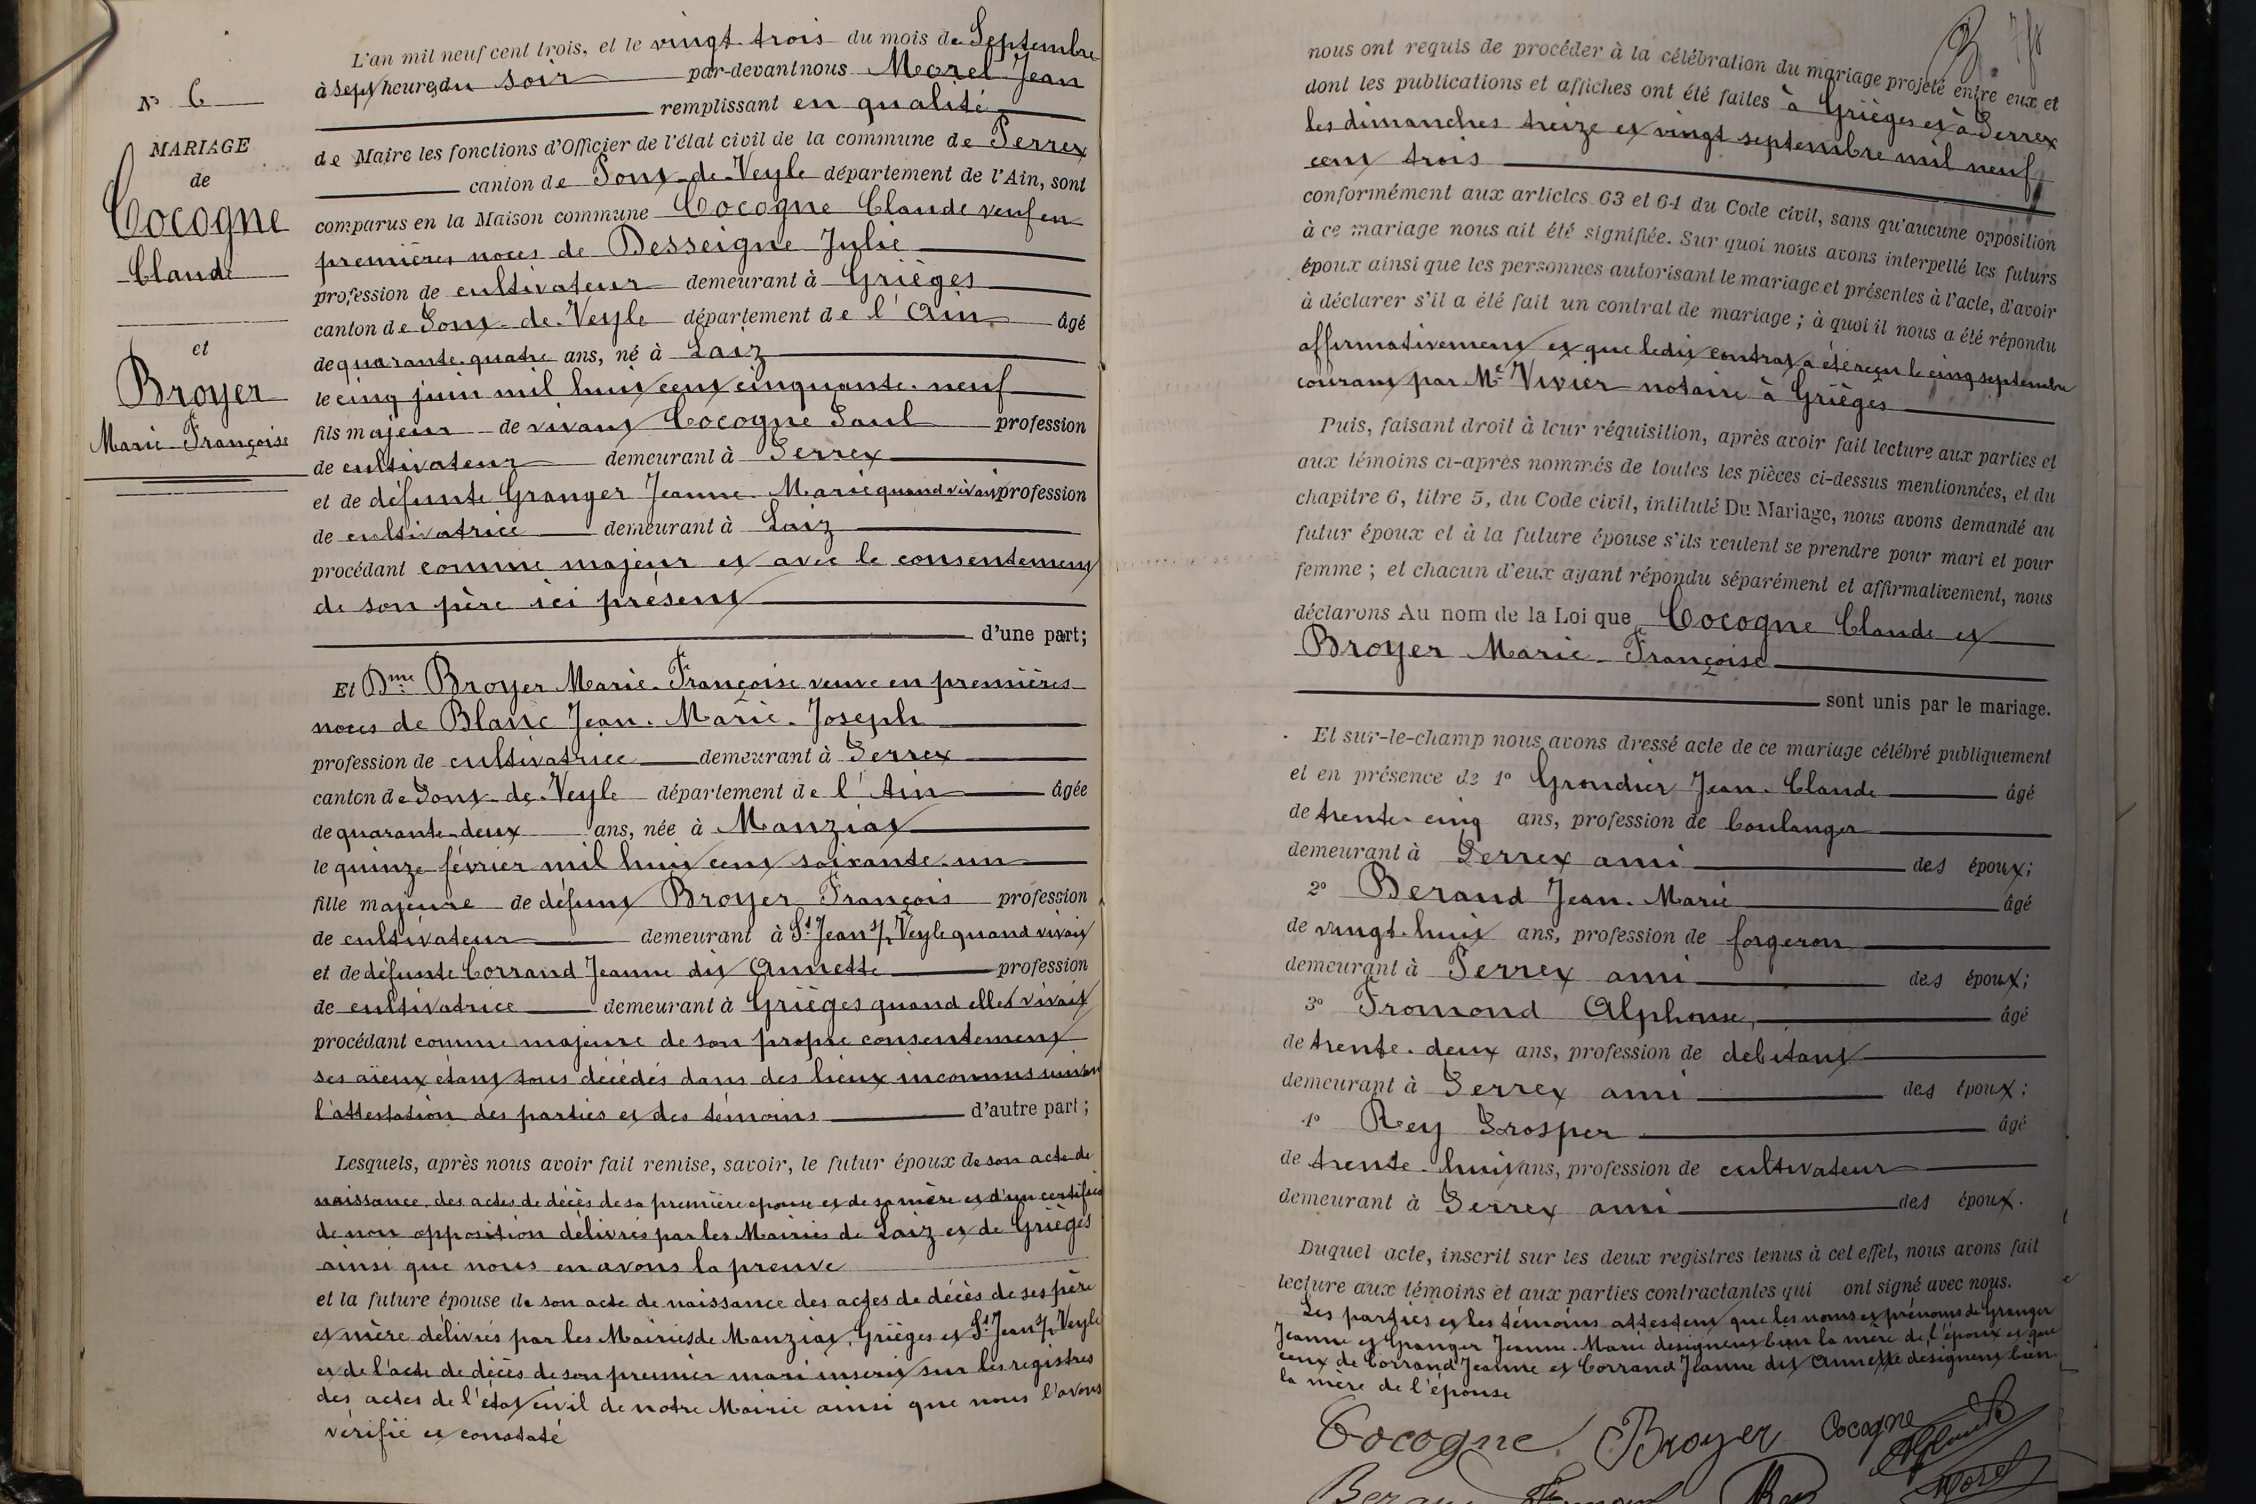 N° 6
MARIAGE
de
Cocogne
Claude
et
Broyer
Marie-Françoise
L'an mil neuf cent trois, et le vingt-trois du mois de Septembre
à sept heures du soir par-devant nous Morel Jean
remplissant en qualité
de Maire les fonctions d'Officier de l'état civil de la commune de Perrex
canton de Pont-de-Veyle département de l'Ain, sont
comparus en la Maison commune Cocogne Claude veuf en
premières noces de Desseigne Julie
profession de cultivateur demeurant à Grièges
canton de Pont-de-Veyle département de l'Ain âgé
de quarante-quatre ans, né à Laiz
le cinq juin mil huit cent cinquante-neuf
fils majeur de vivant Cocogne Paul profession
de cultivateur demeurant à Perrex
et de défunte Granger Jeanne-Marie quand vivait profession
de cultivatrice demeurant à Laiz
procédant comme majeur et avec le consentement
de son père ici présent
d'une part;
Et Dme Broyer Marie-Françoise veuve en premières
noces de Blanc Jean-Marie-Joseph
profession de cultivatrice demeurant à Perrex
canton de Pont-de-Veyle département de l'Ain âgée
de quarante-deux ans, née à Manziat
le quinze février mil huit cent soixante-un
fille majeure de défunt Broyer François profession
de cultivateur demeurant à St Jean s/ Veyle quand vivait
et de défunte Corrand Jeanne dit Annette profession
de cultivatrice demeurant à Grièges quand elle vivait
procédant comme majeure de son propre consentement
ses aïeux étant tous décédés dans des lieux inconnus suivant
l'attestation des parties et des témoins d'autre part;
Lesquels, après nous avoir fait remise, savoir, le futur époux de son acte de
naissance, des actes de décès de sa première épouse et de sa mère et d'un certificat
de non opposition délivrés par les Mairies de Laiz et de Grièges
ainsi que nous en avons la preuve
et la future épouse de son acte de naissance des actes de décès de ses père
et mère délivrés par les Mairies de Manziat, Grièges et St Jean s/ Veyle
et de l'acte de décès de son premier mari inscrit sur les registres
des actes de l'état civil de notre Mairie ainsi que nous l'avons
vérifié et constaté
nous ont requis de procéder à la célébration du mariage projeté entre eux et
dont les publications et affiches ont été faites à Grièges et à Perrex
les dimanches treize et vingt septembre mil neuf
cent trois
conformément aux articles 63 et 64 du Code civil, sans qu'aucune opposition
à ce mariage nous ait été signifiée. Sur quoi nous avons interpellé les futurs
époux ainsi que les personnes autorisant le mariage et présentes à l'acte, d'avoir
à déclarer s'il a été fait un contrat de mariage; à quoi il nous a été répondu
affirmativement et que ledit contrat a été reçu le cinq septembre
courant par Me Vivier notaire à Grièges
Puis, faisant droit à leur réquisition, après avoir fait lecture aux parties et
aux témoins ci-après nommés de toutes les pièces ci-dessus mentionnées, et du
chapitre 6, titre 5, du Code civil, intitulé Du Mariage, nous avons demandé au
futur époux et à la future épouse s'ils veulent se prendre pour mari et pour
femme; et chacun d'eux ayant répondu séparément et affirmativement, nous
déclarons Au nom de la Loi que Cocogne Claude et
Broyer Marie-Françoise
sont unis par le mariage.
Et sur-le-champ nous avons dressé acte de ce mariage célébré publiquement
et en présence de 1° Grondier Jean-Claude âgé
de trente-cinq ans, profession de boulanger
demeurant à Perrex ami des époux;
2° Berand Jean-Marie âgé
de vingt-huit ans, profession de forgeron
demeurant à Perrex ami des époux;
3° Fromond Alphonse, âgé
de trente-deux ans, profession de débitant
demeurant à Perrex ami des époux;
4° Rey Prosper âgé
de trente-huit ans, profession de cultivateur
demeurant à Perrex ami des époux.
Duquel acte, inscrit sur les deux registres tenus à cet effet, nous avons fait
lecture aux témoins et aux parties contractantes qui ont signé avec nous.
Les parties et les témoins attestent que les noms et prénoms de Granger
Jeanne et Granger Jeanne-Marie désignent bien la mère de l'époux et que
ceux de Corrand Jeanne et Corrand Jeanne dit Annette désignent bien
la mère de l'épouse
Cocogne Broyer Cocogne
Morel